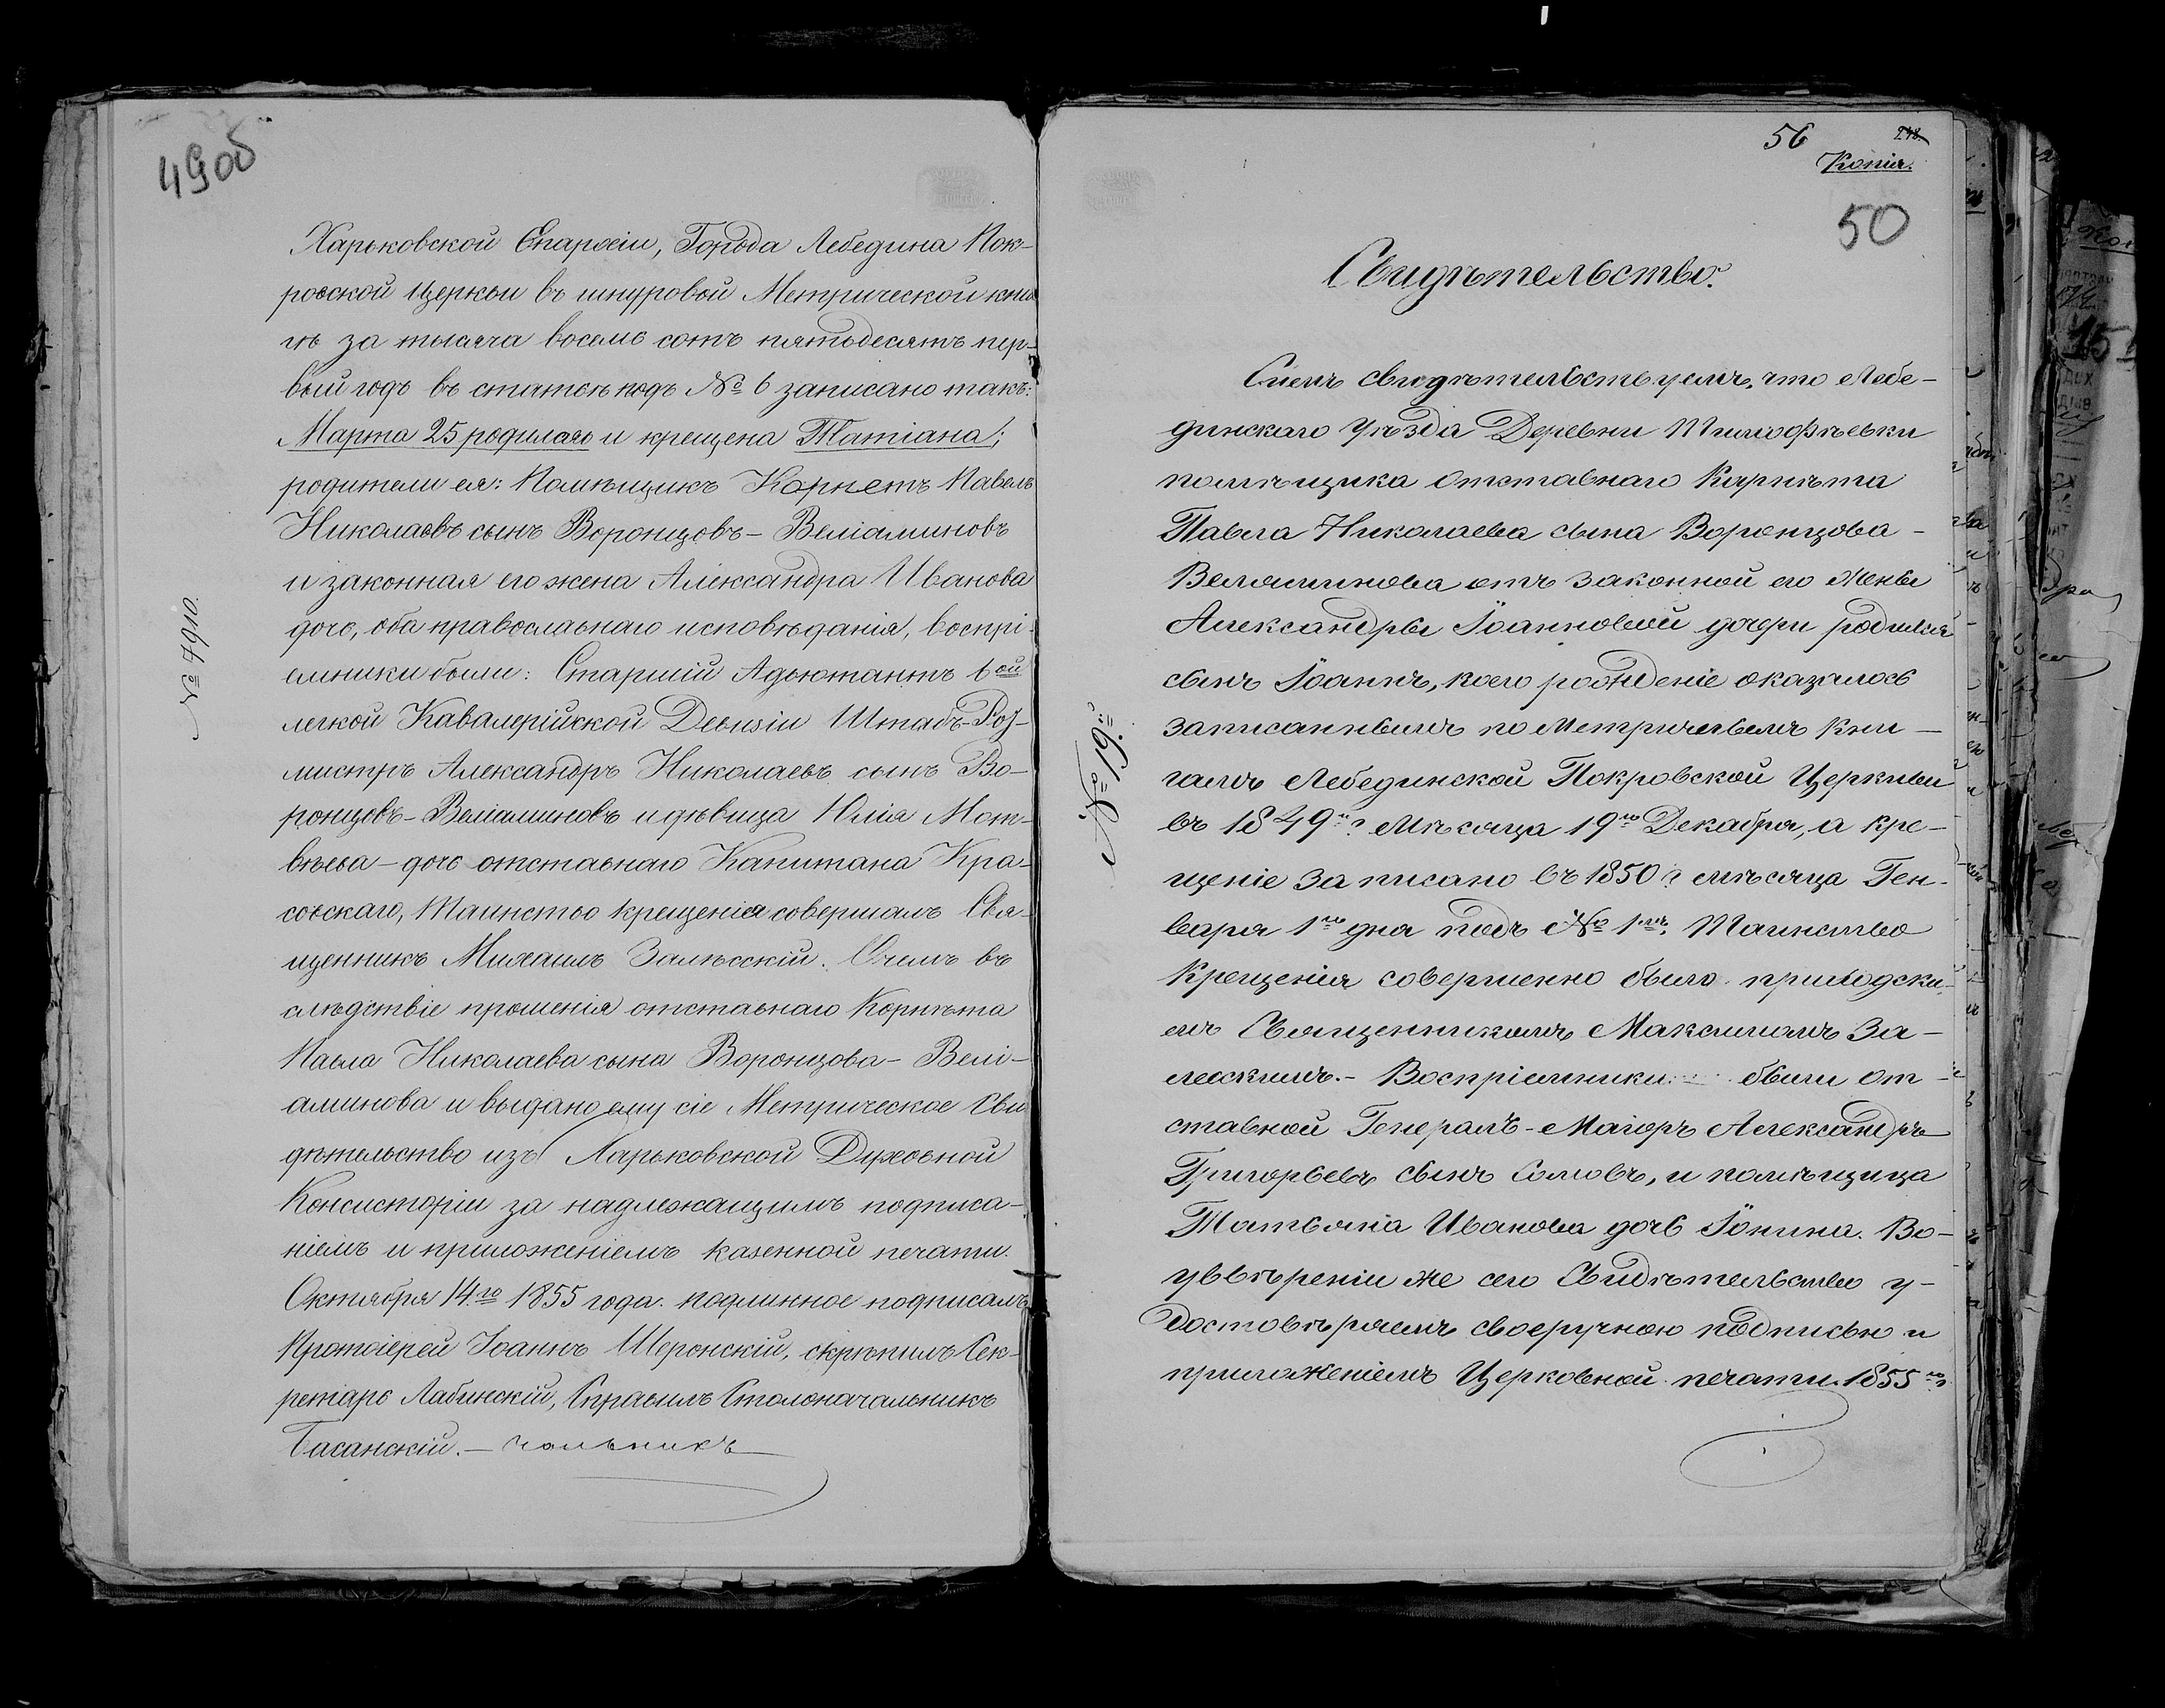 49 об
Харьковской Епархіи, Города Лебедина Пок-
ровской Церкви въ шнуровой Метрической кни
гѣ за тысяча восемь сотъ пятьдесятъ пер-
вый годъ въ статьѣ подъ № 6 записано такъ:
Марта 25 родилась и крещена Татіана;
родители ея: Помѣщикъ Корнетъ Павелъ
Николаевъ сынъ Воронцовъ-Веліаминовъ
и законная его жена Александра Иванова
дочь, оба православнаго исповѣданія, воспрі-
емники были: Старшій Адьютантъ 6ой
легкой Кавалерійской Девизіи Штабъ-Рот-
мистръ Александръ Николаевъ сынъ Во-
ронцовъ-Веліаминовъ и дѣвица Юлія Мат-
вѣева - дочь отставнаго Капитана Кра-
совскаго, Таинство крещенія совершалъ Свя-
щенникъ Михаилъ Залѣсскій. О чемъ въ
слѣдствіе прошенія отставнаго Корнѣта
Павла Николаева сына Воронцова-Велі-
аминова и выдано ему сіе Метрическое Сви
дѣтельство изъ Харьковской Духовной
Консисторіи за надлежащимъ подписа-
ніемъ и приложеніемъ казенной печати.
Октября 14го 1855 года. подлинное подписалъ
Протоіерей Іоаннъ Шеронскій, скрѣпилъ Сек-
ретарь Лабинскій, Справилъ Столоначальникъ
Басанскій. - чальникъ
№ 7910.
56
248.
Копія.
50
Свидѣтельство.
Симъ свидѣтельствуемъ, что Лебе-
динскаго Уѣзда Деревни Тимофѣевки
помѣщика отставнаго Карнѣта
Павла Николаева сына Воронцова-
Вельяминова отъ законной его Жены
Александры Іоанновой дочери родился
сынъ Іоаннъ, коего рожденіе оказалось
записаннымъ по Метричнымъ Кни-
гамъ Лебединской Покровской Церкви
въ 1849мъ г. Мѣсяца 19го Декабря, а кре-
щеніе записано въ 1850 г. мѣсяца Ген-
варя 1го дня подъ № 1мъ, Таинство
Крещенія совершенно было приходски-
мъ Священникомъ Максимомъ За-
лескимъ. - Воспріемники были от-
ставной Генералъ-Маіоръ Александръ
Григорьевъ сынъ Сомовъ, и помѣщица
Татьяна Иванова дочь Іонина. Во-
увѣреніи же сего Свидѣтельство у-
достовѣряемъ своеручною подписью и
приложеніемъ Церковной печати. 1855 го г.
№ 19.